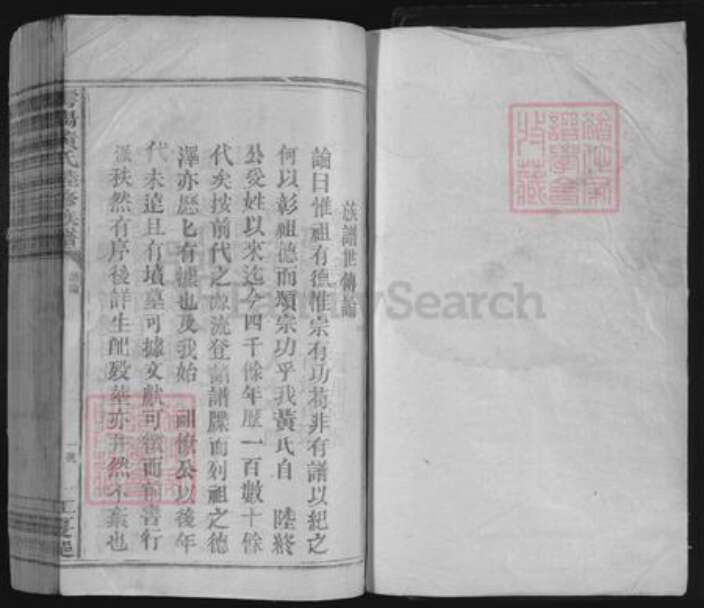 族譜世傳論
論曰惟祖有德惟宗有功茍非有譜以紀之
何以彰祖德而頌宗功乎我黃氏自 陸終
公受姓以來迄今四千餘年歷一百數十餘
代矣按前代之源流登諸譜牒而列祖之德
澤亦歷七有據也及我始 祖 公以後年
代未遠且有墳墓可據文獻可徵而前書行
秩然有序後詳生配歿葬亦井然不紊也
黃氏 修族譜
一號
江夏
FamilySearch